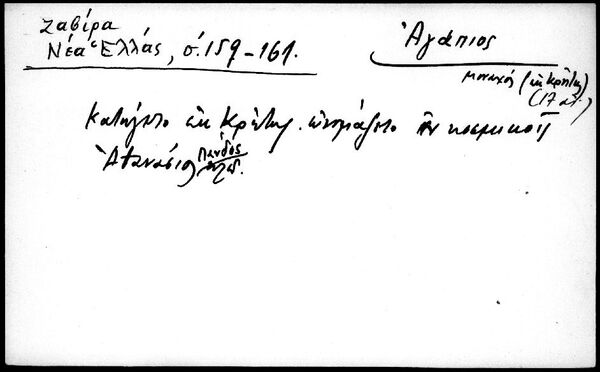 Ζαβίρα
Νέα Ἑλλάς, σ. 159-161.
Ἀγάπιος
μοναχός (ἐκ Κρήτης)
(17 αἰ.)
κατήγετο ἐκ Κρήτης. ὠνομάζετο ἐν κοσμικοῖς
Ἀθανάσιος Λάνδος